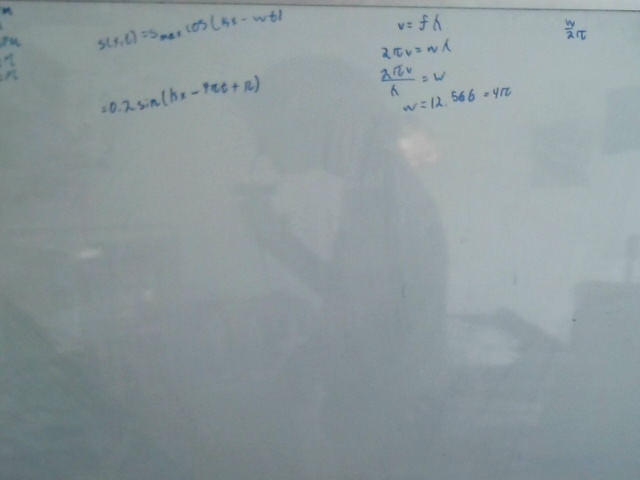 s(x,t) = s max cos(kx - wt)
= 0.2 sin(kx - 4πt + π)
v = fλ
2πv = wλ
2πv/λ = w
w = 12.566 = 4π
w/2π